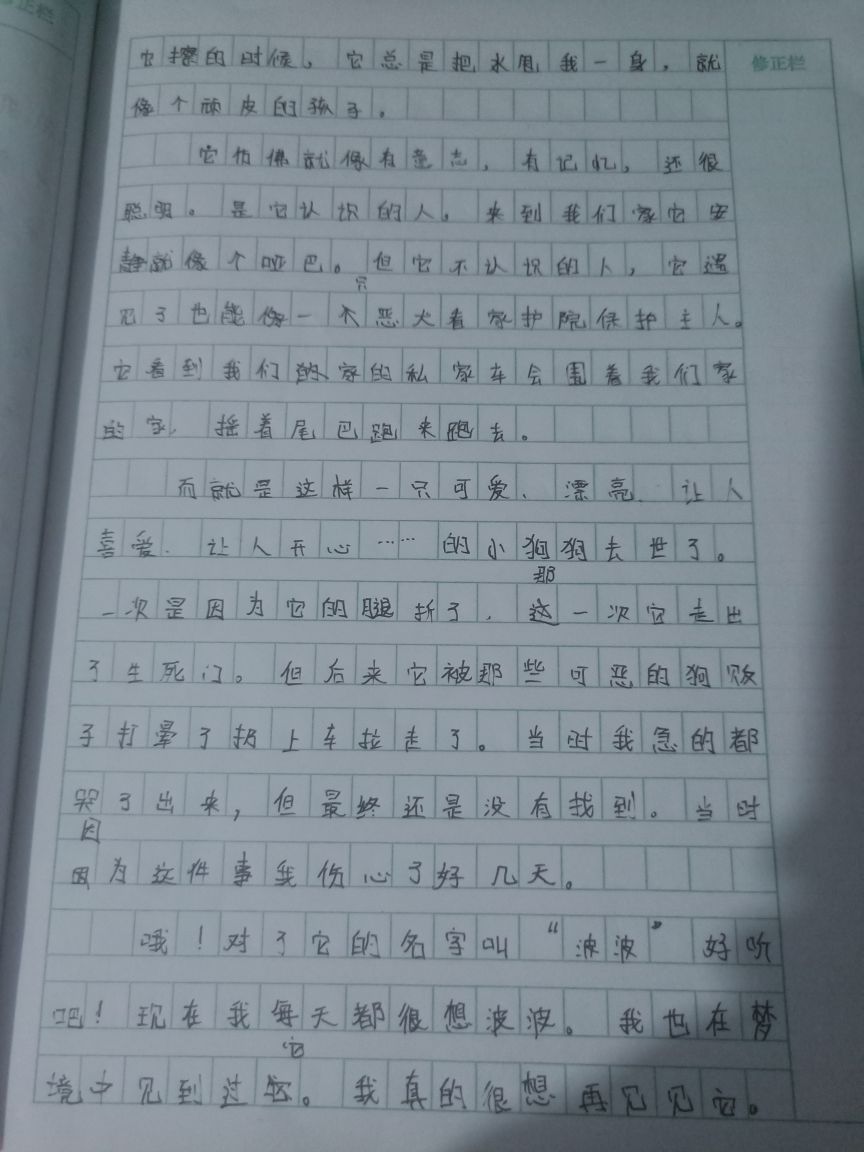 修正栏
它擦的时候，它总是把水甩我一身，就
像个顽皮的孩子。
它仿佛就像有意志，有记忆，还很
聪明。是它认识的人。来到我们家它安
静就像个哑巴。但它不认识的人，它遇
只
见了也能像一不恶犬看家护院保护主人。
它看到我们的家的私家车会围着我们家
的家，摇着尾巴跑来跑去。
而就是这样一只可爱、漂亮、让人
喜爱、让人开心……的小狗狗去世了。
那
一次是因为它的腿折了，这一次它走出
了生死门。但后来它被那些可恶的狗贩
子打晕了扔上车拉走了。当时我急的都
哭了出来，但最终还是没有找到。当时
因
因为这件事我伤心了好几天。
哦！对了它的名字叫“波波”好听
吧！现在我每天都很想波波。我也在梦
它
境中见到过它。我真的很想再见见它。